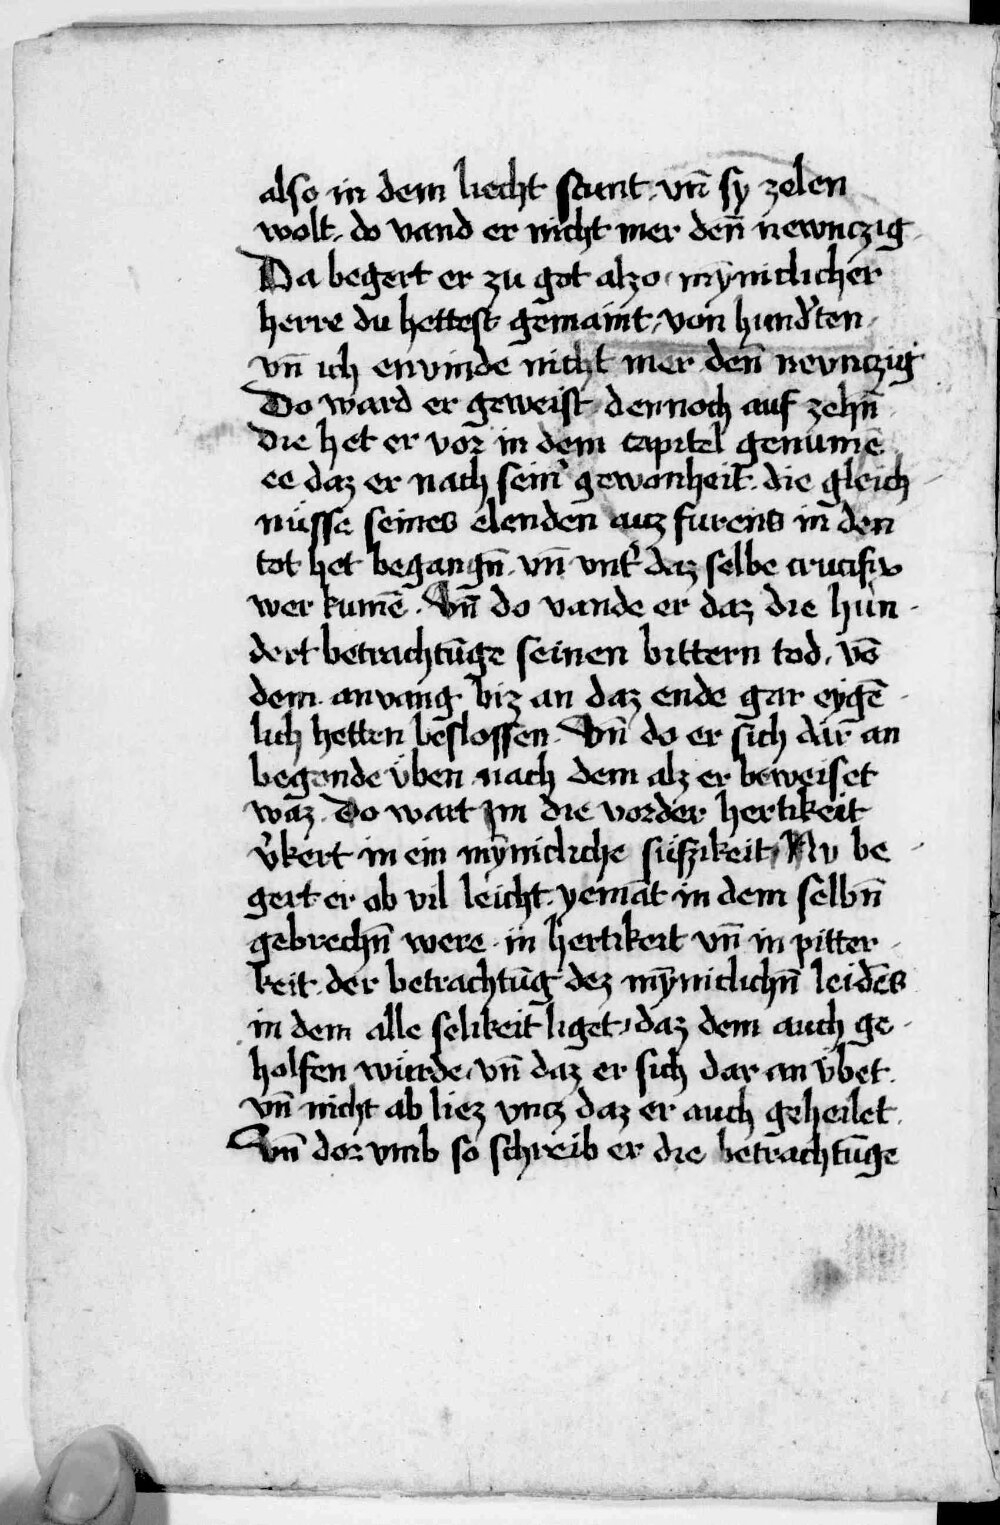 also in dem liecht stunt vn̄ sy zelen
wolt. do vand er nicht mer den̄ newnczig
Da begert er zu got alzo mȳniclicher
herre du hettest gemaint von hundʼten
vn̄ ich envinde nicht mer den̄ nevnczig
Do ward er geweist dennoch auf zehn̄
die het er vor in dem capitel genumē
ee daz er nach seinʼ gewonheit die gleich
nüsse seines elenden auz furens in den
tot het begangn̄. vn̄ vntʼ daz selbe crucifix
wer kumē. Vn̄ do vande er daz die hun
dert betrachtūge seinen bittern tod. vō
dem anvang biz an daz ende gar eygē
lich hetten beslossen. Vn̄ do er sich dar an
begonde üben nach dem alz er beweiset
waz. Do wart Im die vorder hertikeit
vʼkert in ein mȳnicliche süszikeit. Nv be
gert er ob vil leicht yemāt in dem selbn̄
gebrechn̄ were in hertikeit vn̄ in pitter
keit der betrachtūg dez mȳniclichn̄ leidēs
in dem alle selikeit liget, daz dem auch ge
holfen würde, vn̄ daz er sich dar an übet.
vn̄ nicht ab liez vncz daz er auch geheilet.
Vn̄ dor vmb so schreib er die betrachtūge